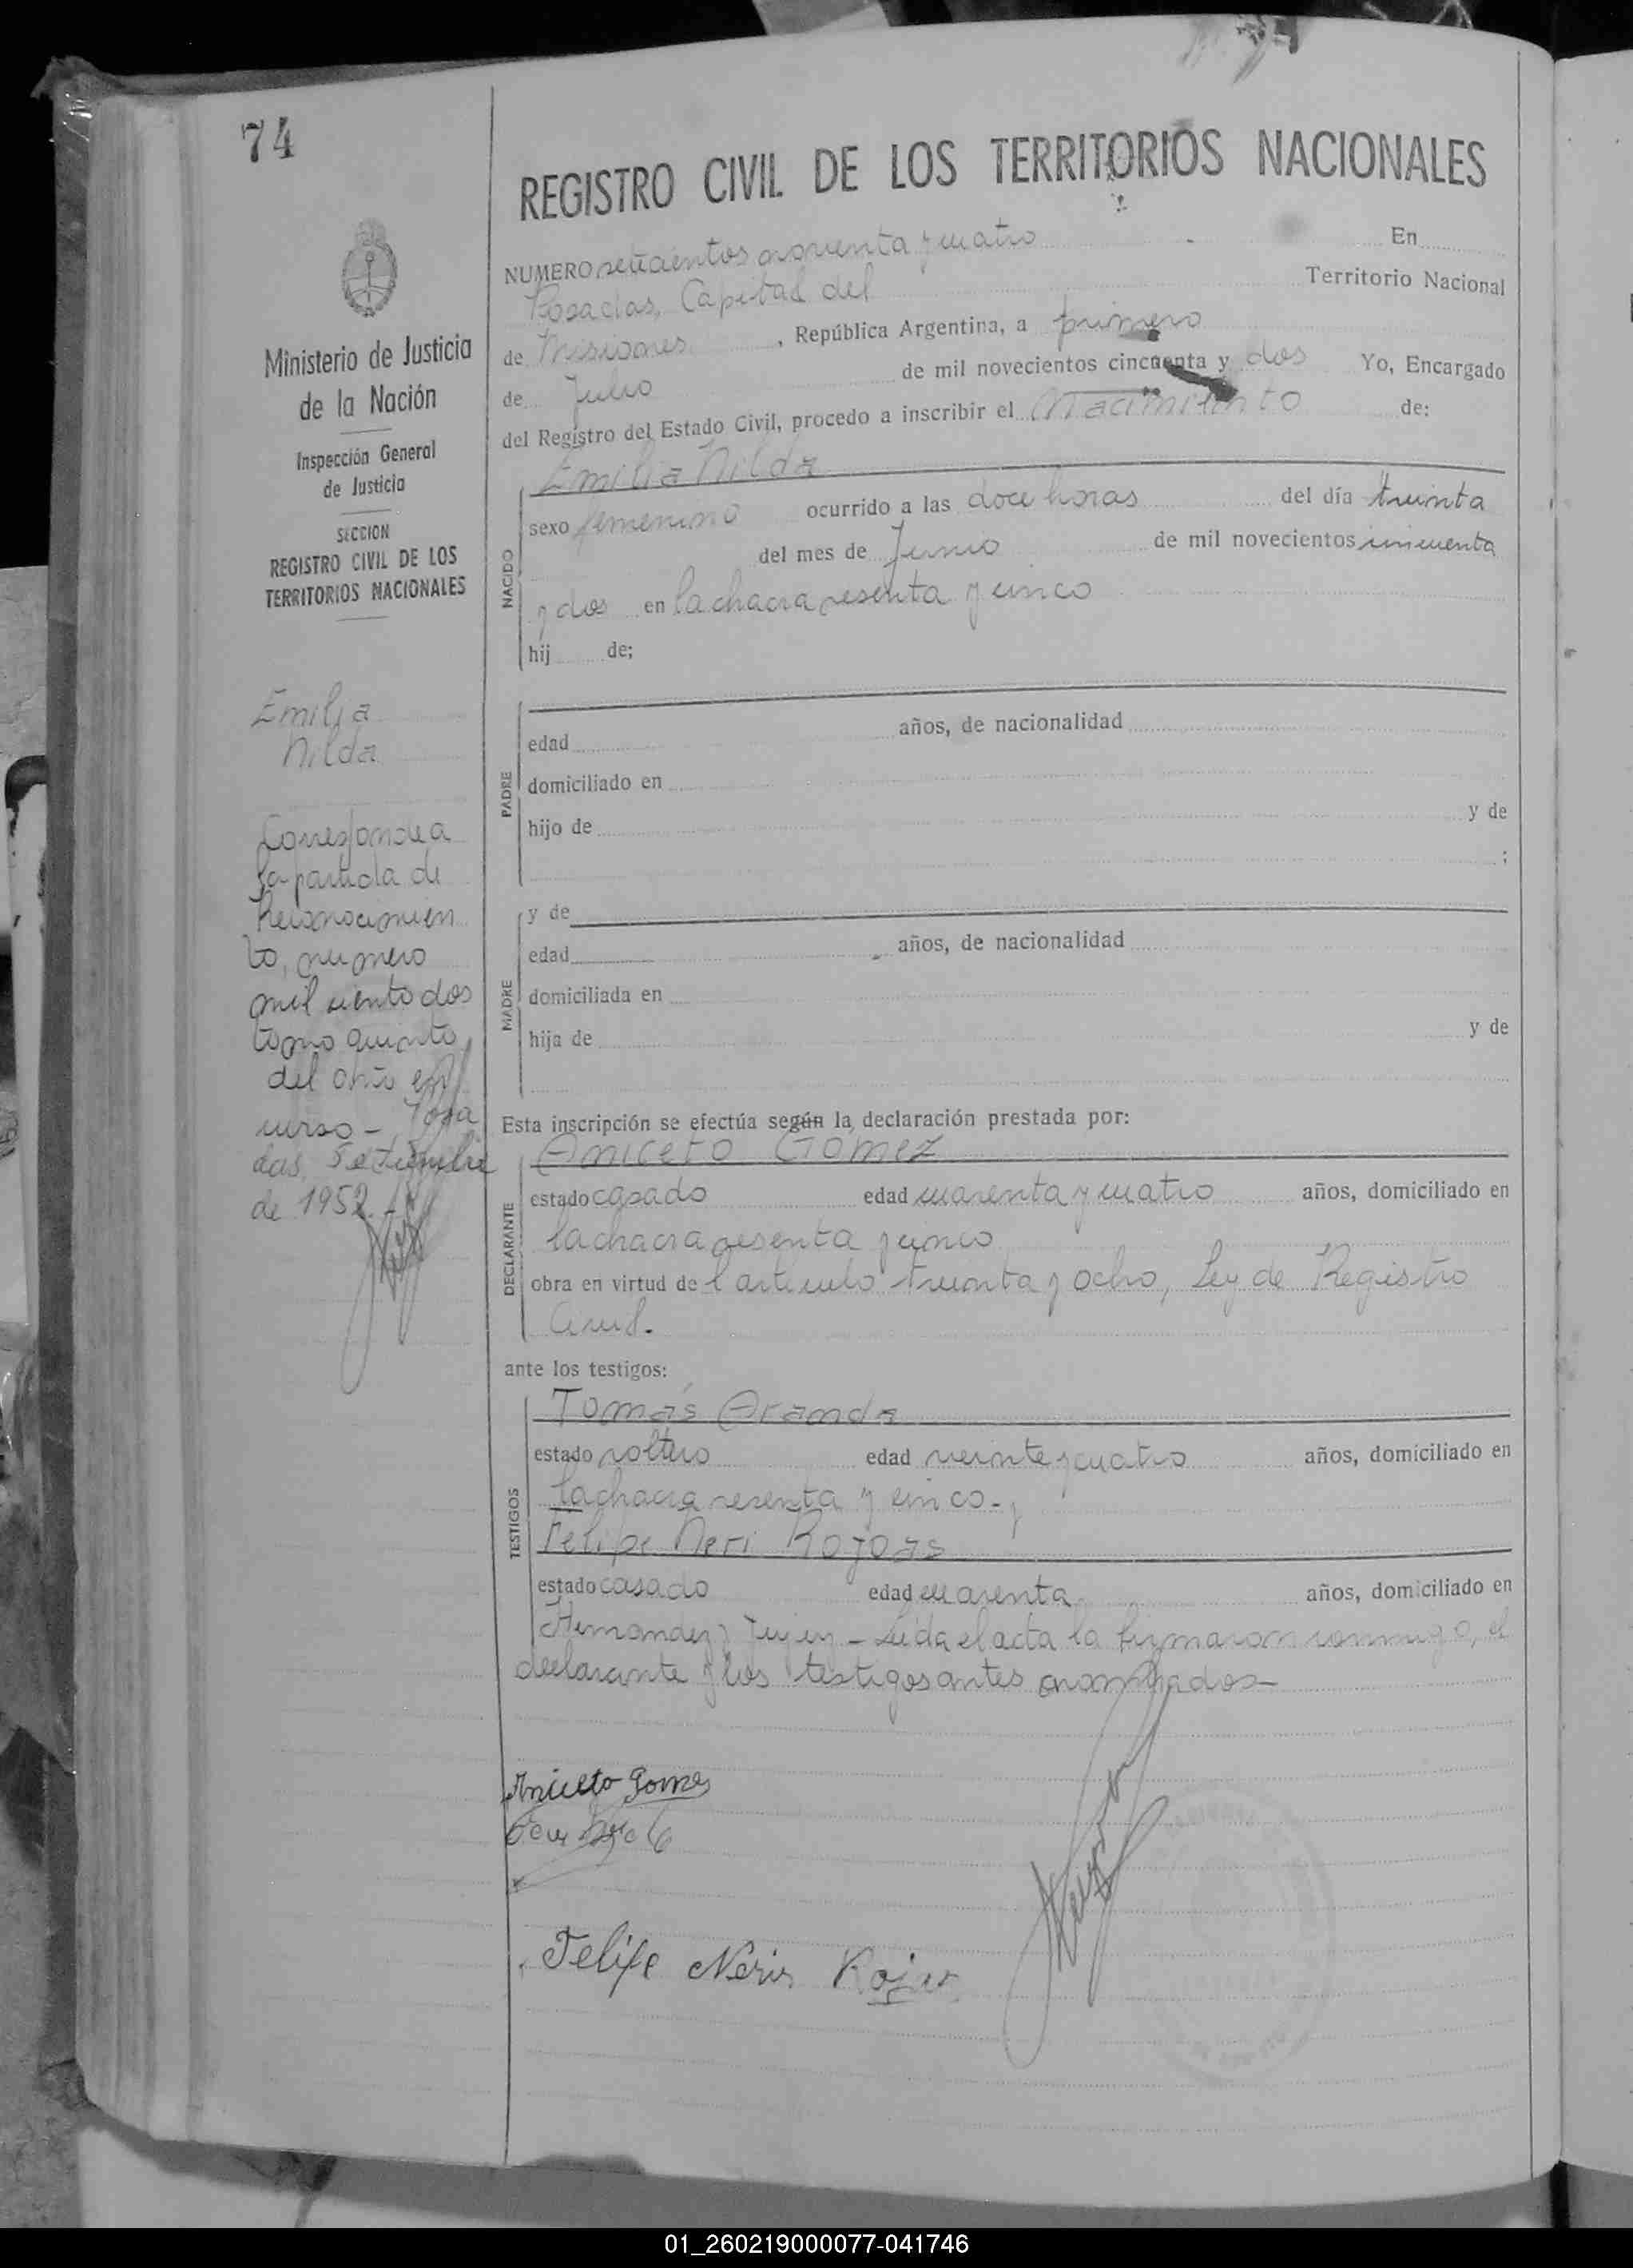 74
REGISTRO CIVIL DE LOS TERRITORIOS NACIONALES
Ministerio de Justicia
de la Nación
Inspección General
de Justicia
SECCION
REGISTRO CIVIL DE LOS
TERRITORIOS NACIONALES
Emilia
Nilda
Corresponde a
la partida de
Reconocimien
to, numero
mil ciento dos
tomo quinto
del año en
curso - Posa
das, Setiembre
de 1952
NUMERO setecientos noventa y cuatro En
Posadas, Capital del Territorio Nacional
de Misiones, República Argentina, a primero
de Julio de mil novecientos cincuenta y dos Yo, Encargado
del Registro del Estado Civil, procedo a inscribir el Nacimiento de:
Emilia Nilda
NACIDO
sexo femenino ocurrido a las doce horas del día treinta
del mes de Junio de mil novecientos cincuenta
y dos en la chacra sesenta y cinco
hij de;
PADRE
edad años, de nacionalidad
domiciliado en
hijo de y de
;
MADRE
y de
edad años, de nacionalidad
domiciliada en
hija de y de
Esta inscripción se efectúa según la declaración prestada por:
Aniceto Gómez
DECLARANTE
estado casado edad cuarenta y cuatro años, domiciliado en
la chacra sesenta y cinco
obra en virtud del articulo treinta y ocho, Ley de Registro
Civil.
ante los testigos:
TESTIGOS
Tomás Aranda
estado soltero edad veinte y cuatro años, domiciliado en
la chacra sesenta y cinco - y
Felipe Neri Rojas
estado casado edad cuarenta años, domiciliado en
Hernandez y Jujuy - Leída el acta la firmaron conmigo, el
declarante y los testigos antes nombrados -
Aniceto Gomes
Felipe Neris Rojas
01_260219000077-041746